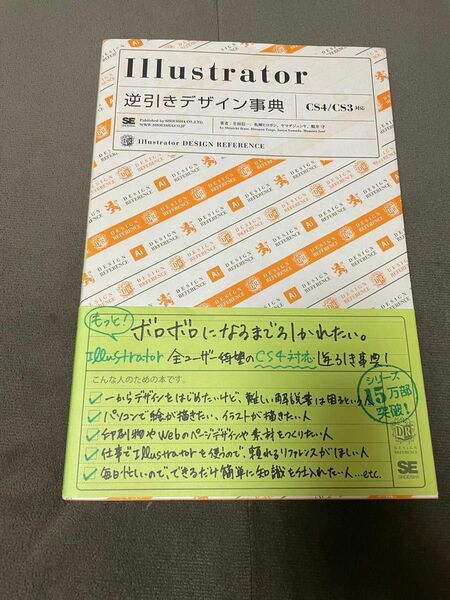 Illustrator
逆引きデザイン事典
CS4/CS3対応
SE
SHOEISHA
Published by SHOEISHA CO.,LTD.
WWW.SHOEISHA.CO.JP
Illustrator DESIGN REFERENCE
Ai
DESIGN
REFERENCE
もっと!
ボロボロになるまでひかれたい。
Illustrator 全ユーザー待望のCS4対応 逆引き事典!
こんな人のための本です。
一からデザインをはじめたいけど、難しい解説書は困るという人
パソコンで絵が描きたい、イラストが描きたい人
印刷物やWebのページデザインや素材をつくりたい人
仕事でIllustratorを使うので、頼れるリファレンスがほしい人
毎日忙しいので、できるだけ簡単に知識を仕入れたい人…etc.
シリーズ
15万部
突破!
DR
SE
SHOEISHA